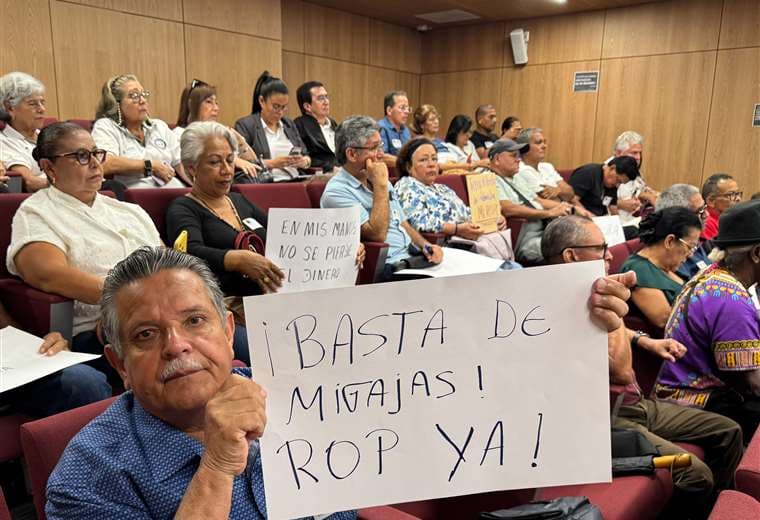 EN MIS MANOS
NO SE PIERDE
EL DINERO
¡BASTA DE
MIGAJAS!
ROP YA!